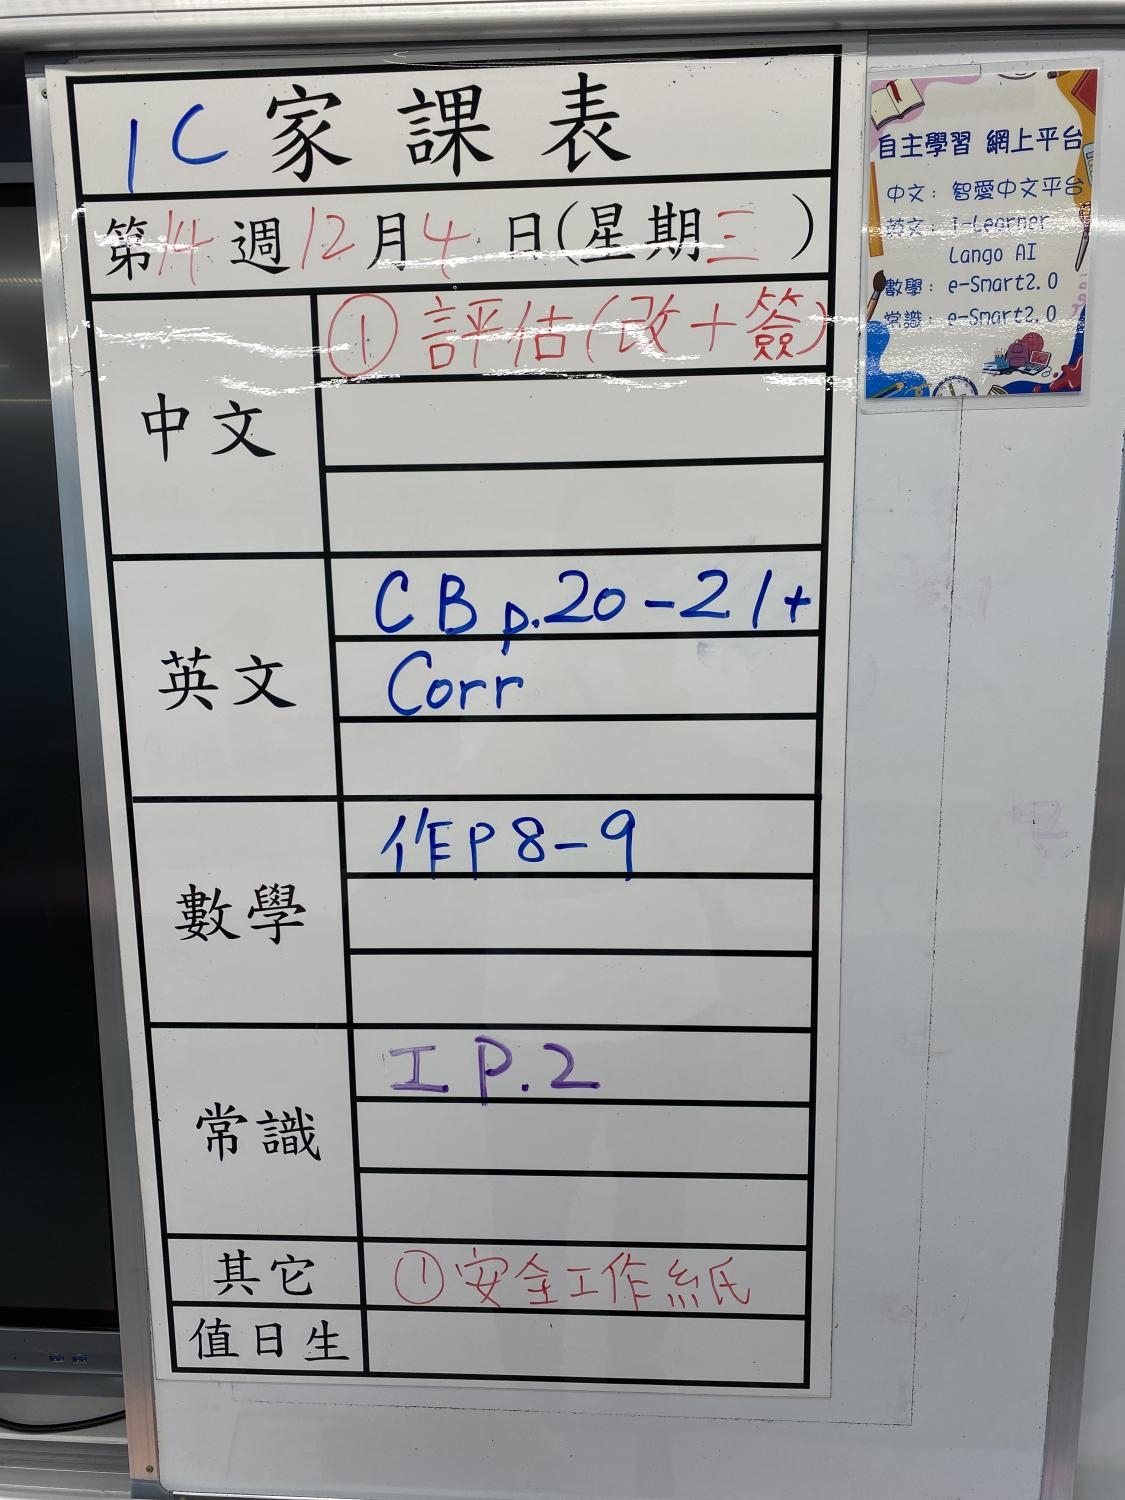 1C 家課表
第14週12月4日(星期三)
中文
①評估(改+簽)
英文
CB p.20-21+
Corr
數學
作P8-9
常識
工P.2
其它
①安全工作紙
值日生
自主學習 網上平台
中文：智愛中文平台
英文：i-Learner
Lango AI
數學：e-Smart2.0
常識：e-Smart2.0